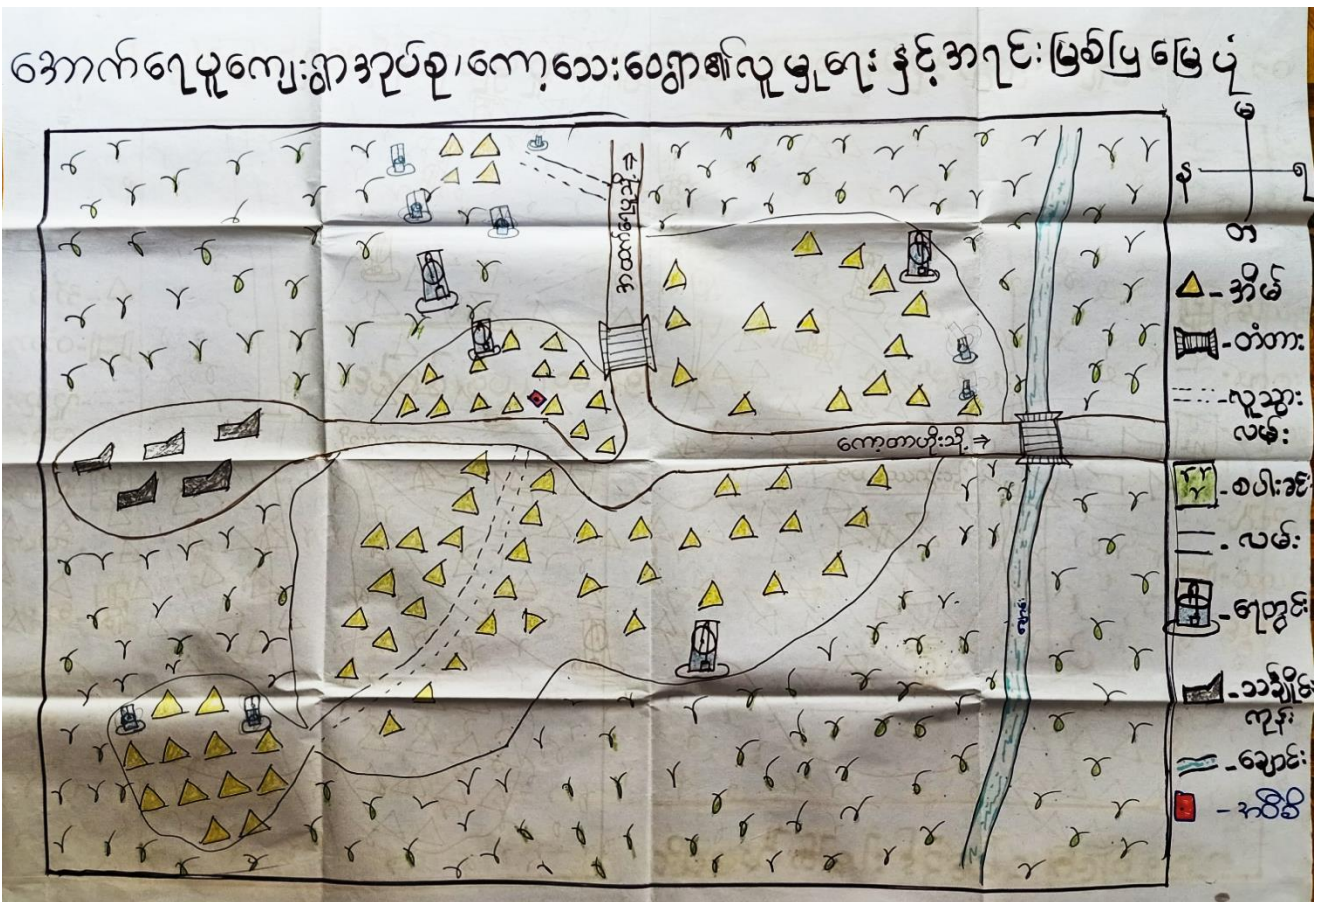 အောက်ရေပူကျေးရွာအုပ်စု၊ကော့သေးဝေရွာ၏လူမှုရေးနှင့်အရင်းမြစ်ပြမြေပုံ
မ
န
ရ
တ
- အိမ်
- တံတား
- လူသွား
လမ်း
- စပါးခင်း
- လမ်း
- ရေတွင်း
- သင်္ချိုင်း
ကုန်း
- ချောင်း
- အစိမ်
ကော့တာဟိုးသို့ →
ချောင်း